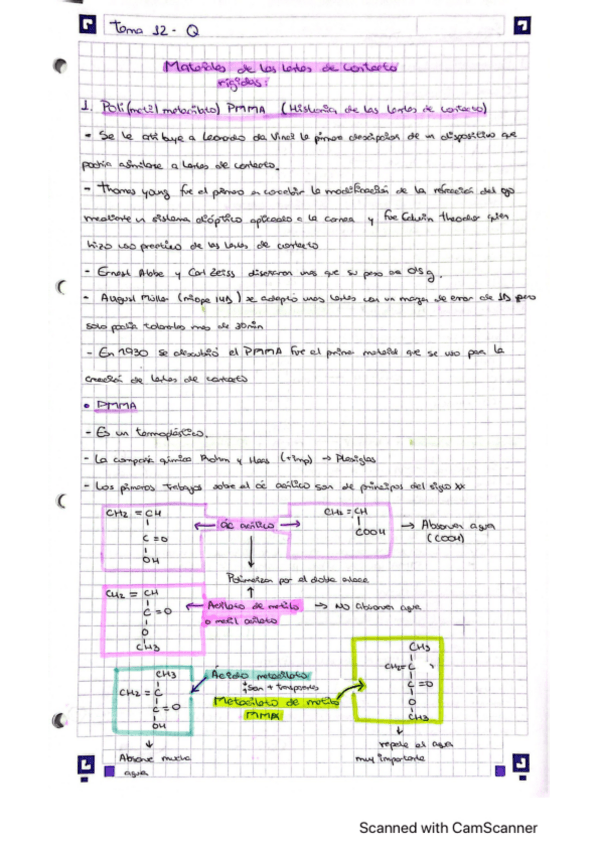 Tema 12 - Q
Materiales de las lentes de contacto
rígidas:
1. Poli(metil metacrilato) PMMA (Historia de las lentes de contacto)
- Se le atribuye a Leonardo da Vinci la primera descripción de un dispositivo que
podría asimilarse a lentes de contacto.
- Thomas Young fue el primero en concebir la modificación de la refracción del ojo
mediante un sistema dióptrico aplicado a la cornea y fue Edwin Theodor quien
hizo uso practico de las lentes de contacto
- Ernest Abbe y Carl Zeiss diseñaron unas que su peso era 0'5g.
- August Müller (miope 14D) se adaptó unas lentes con un margen de error de 1D pero
solo podía tolerarlas mas de 30min
- En 1930 se descubrió el PMMA fue el primer material que se uso para la
creación de lentes de contacto
• PMMA
- Es un termoplástico.
- La compañía química Rohm y Haas (+imp) → Plexiglas
- Los primeros trabajos sobre el ác acrílico son de principios del siglo XX
CH2 = CH
C=O
OH
← Ác acrílico →
CH2 = CH
COOH
→ Absorven agua
(COOH)
Polimerizan por el doble enlace
CH2 = CH
C=O
O
CH3
← Acrilato de metilo
o metil acrilato
→ NO absorven agua
CH3
CH2 = C
C=O
OH
Ácido metacrilato
son + transparentes
Metacrilato de metilo
MMA
CH3
CH2=C
C=O
O
CH3
Absorve mucha
agua
repele el agua
muy importante
Scanned with CamScanner